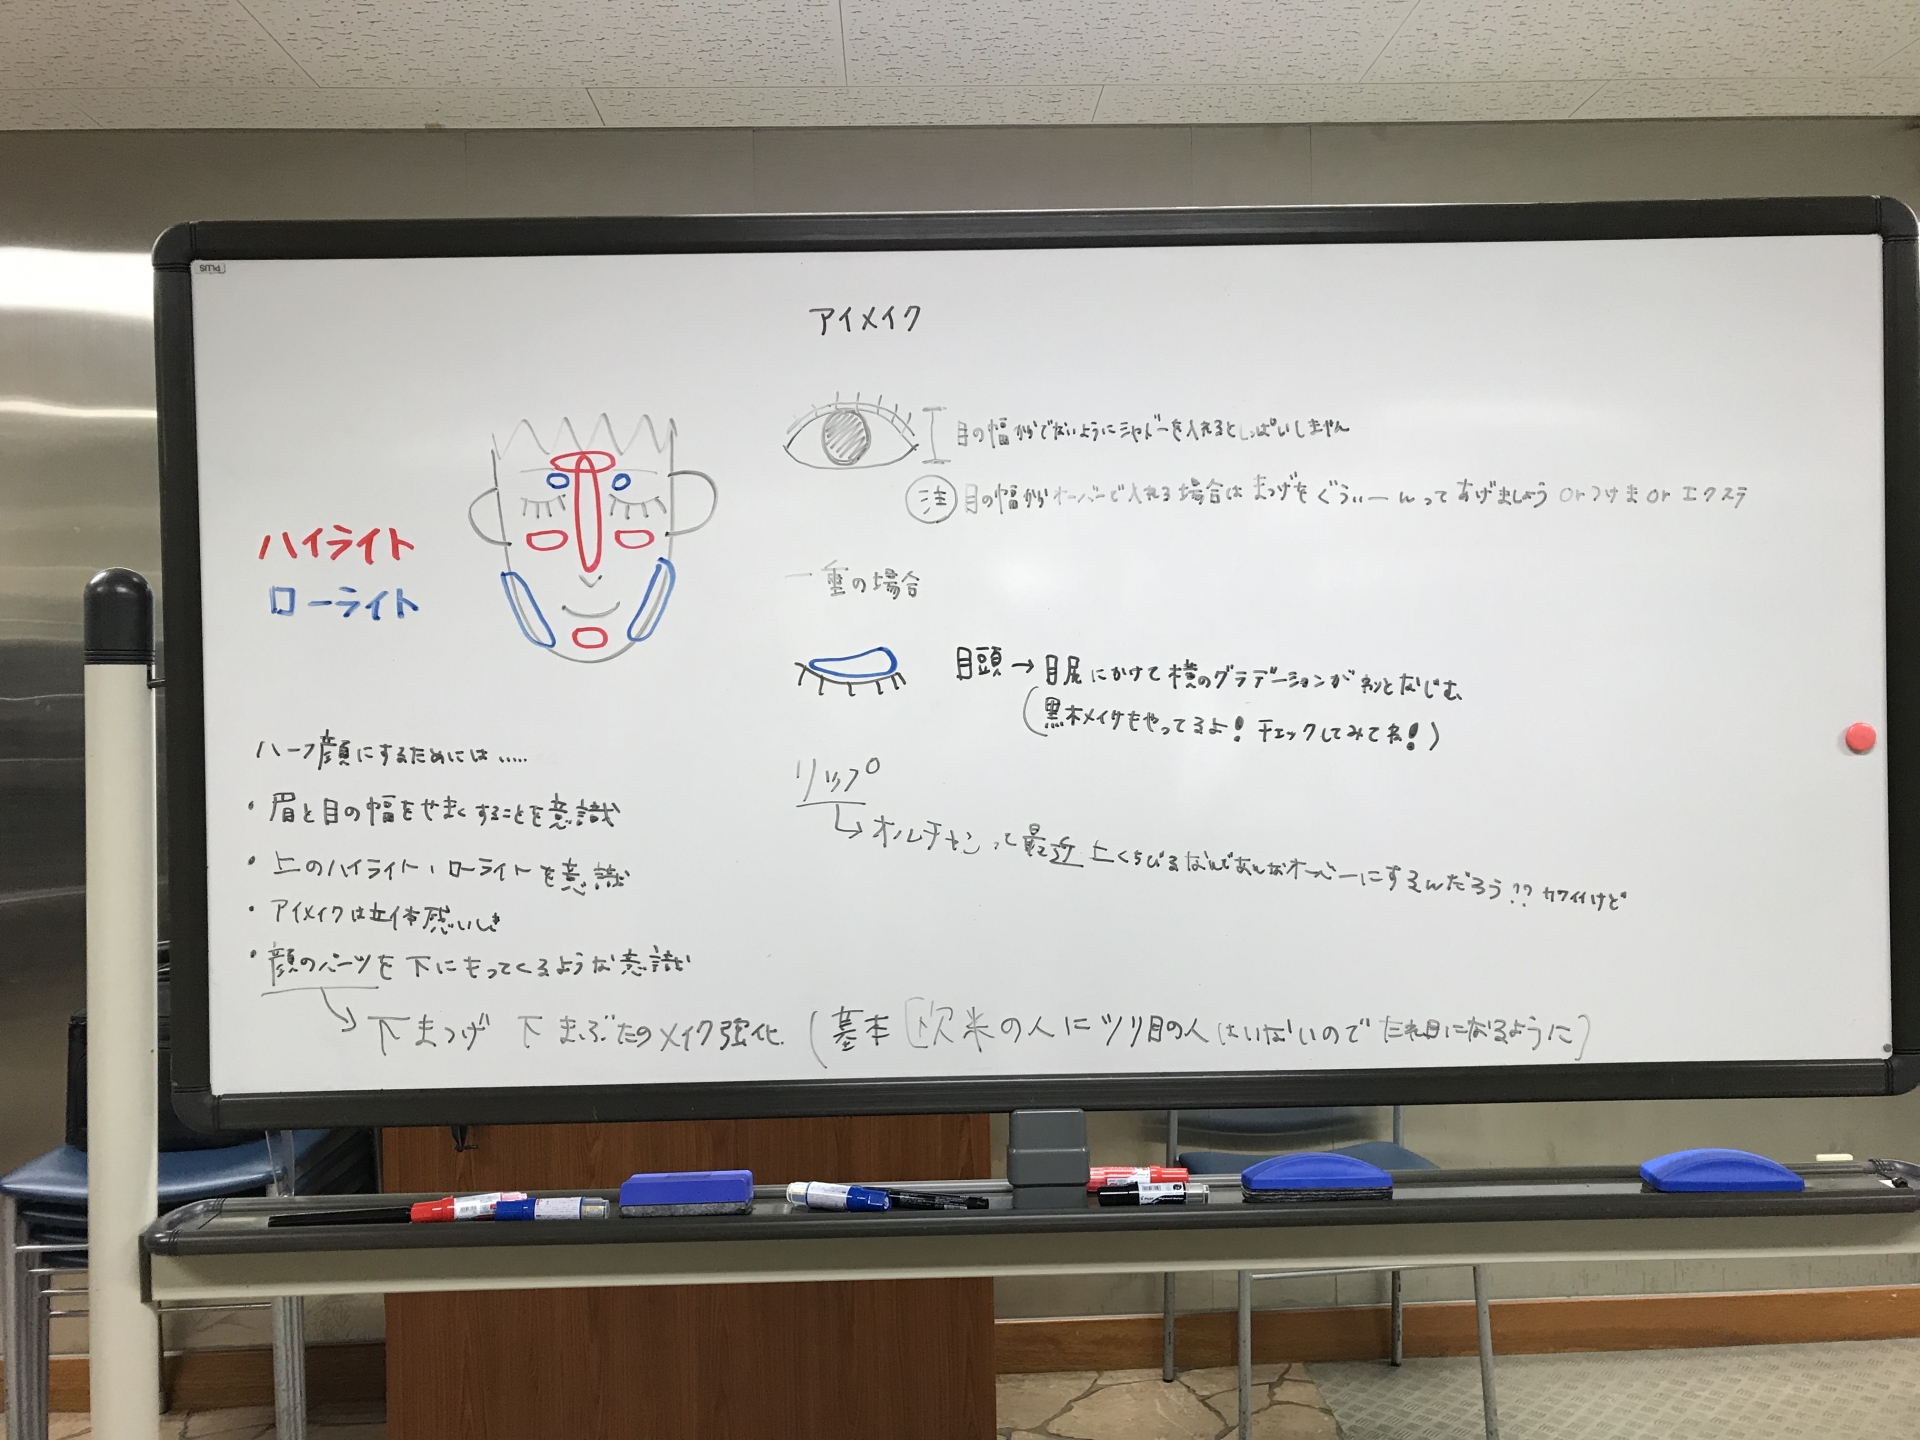 PLUS
アイメイク
目の幅からでないようにシャドーを入れるとしっぱいしません
注 目の幅からオーバーで入れる場合はまつげをぐうぃーんってあげましょう orつけま or エクステ
ハイライト
ローライト
一重の場合
目頭→目尻にかけて横のグラデーションが なじむ
(黒木メイサもやってるよ！チェックしてみてね！)
リップ
オルチャンって最近上くちびるなんであんなオーバーにするんだろう??カワイイけど
ハーフ顔にするためには.....
・眉と目の幅をせまくすることを意識
・上のハイライト、ローライトを意識
・アイメイクは立体感いしき
・顔のパーツを下にもってくるような意識
下まつげ 下まぶたのメイク強化 (基本欧米の人にツリ目の人はいないのでたれ目になるように)